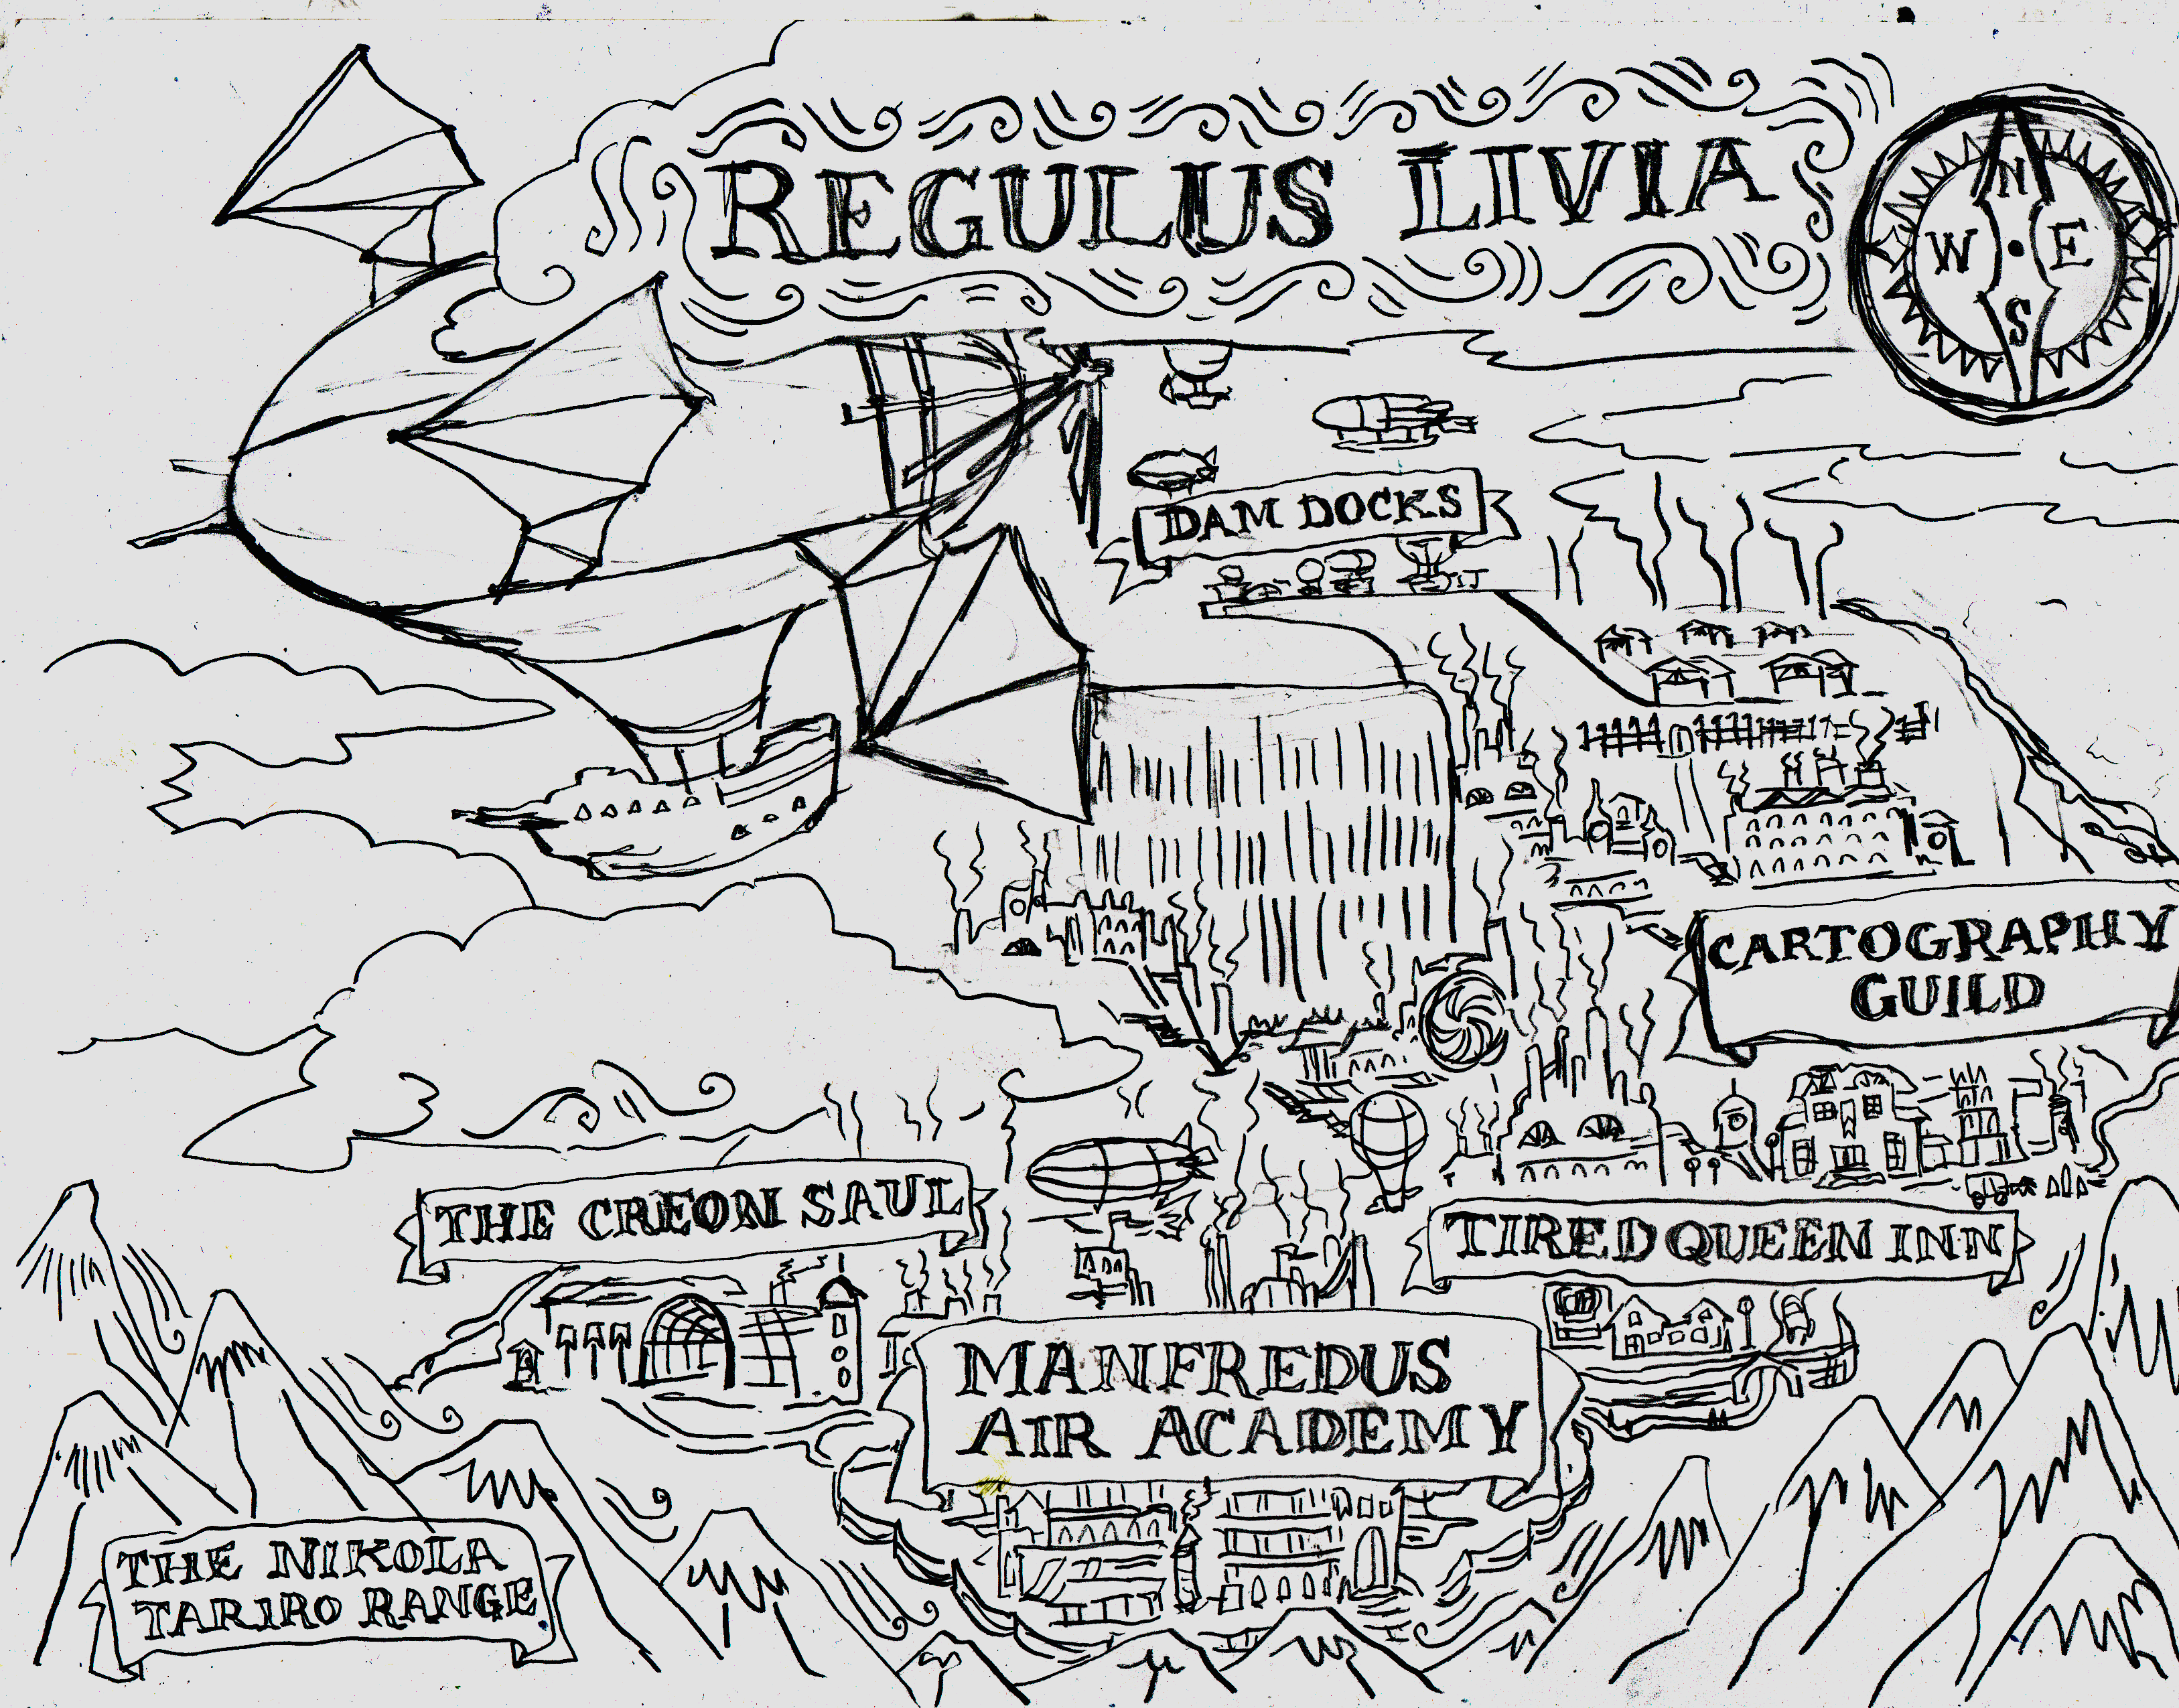 REGULUS LIVIA
N
W E
S
DAM DOCKS
CARTOGRAPHY
GUILD
THE CREON SAUL
TIRED QUEEN INN
MANFREDUS
AIR ACADEMY
THE NIKOLA
TARIRO RANGE